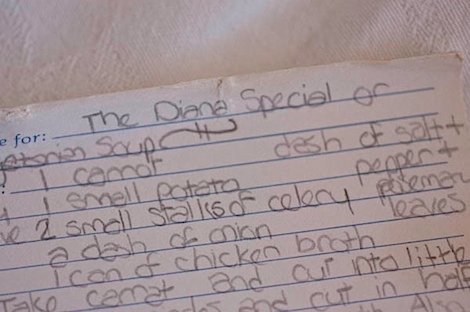 e for: The Diana Special or
getarian Soup
1 carrot dash of salt +
1 small potato pepper +
2 small stalks of celery rosemary
a dash of onion leaves
1 can of chicken broth
Take carrot and cut into little
and cut in half
Also